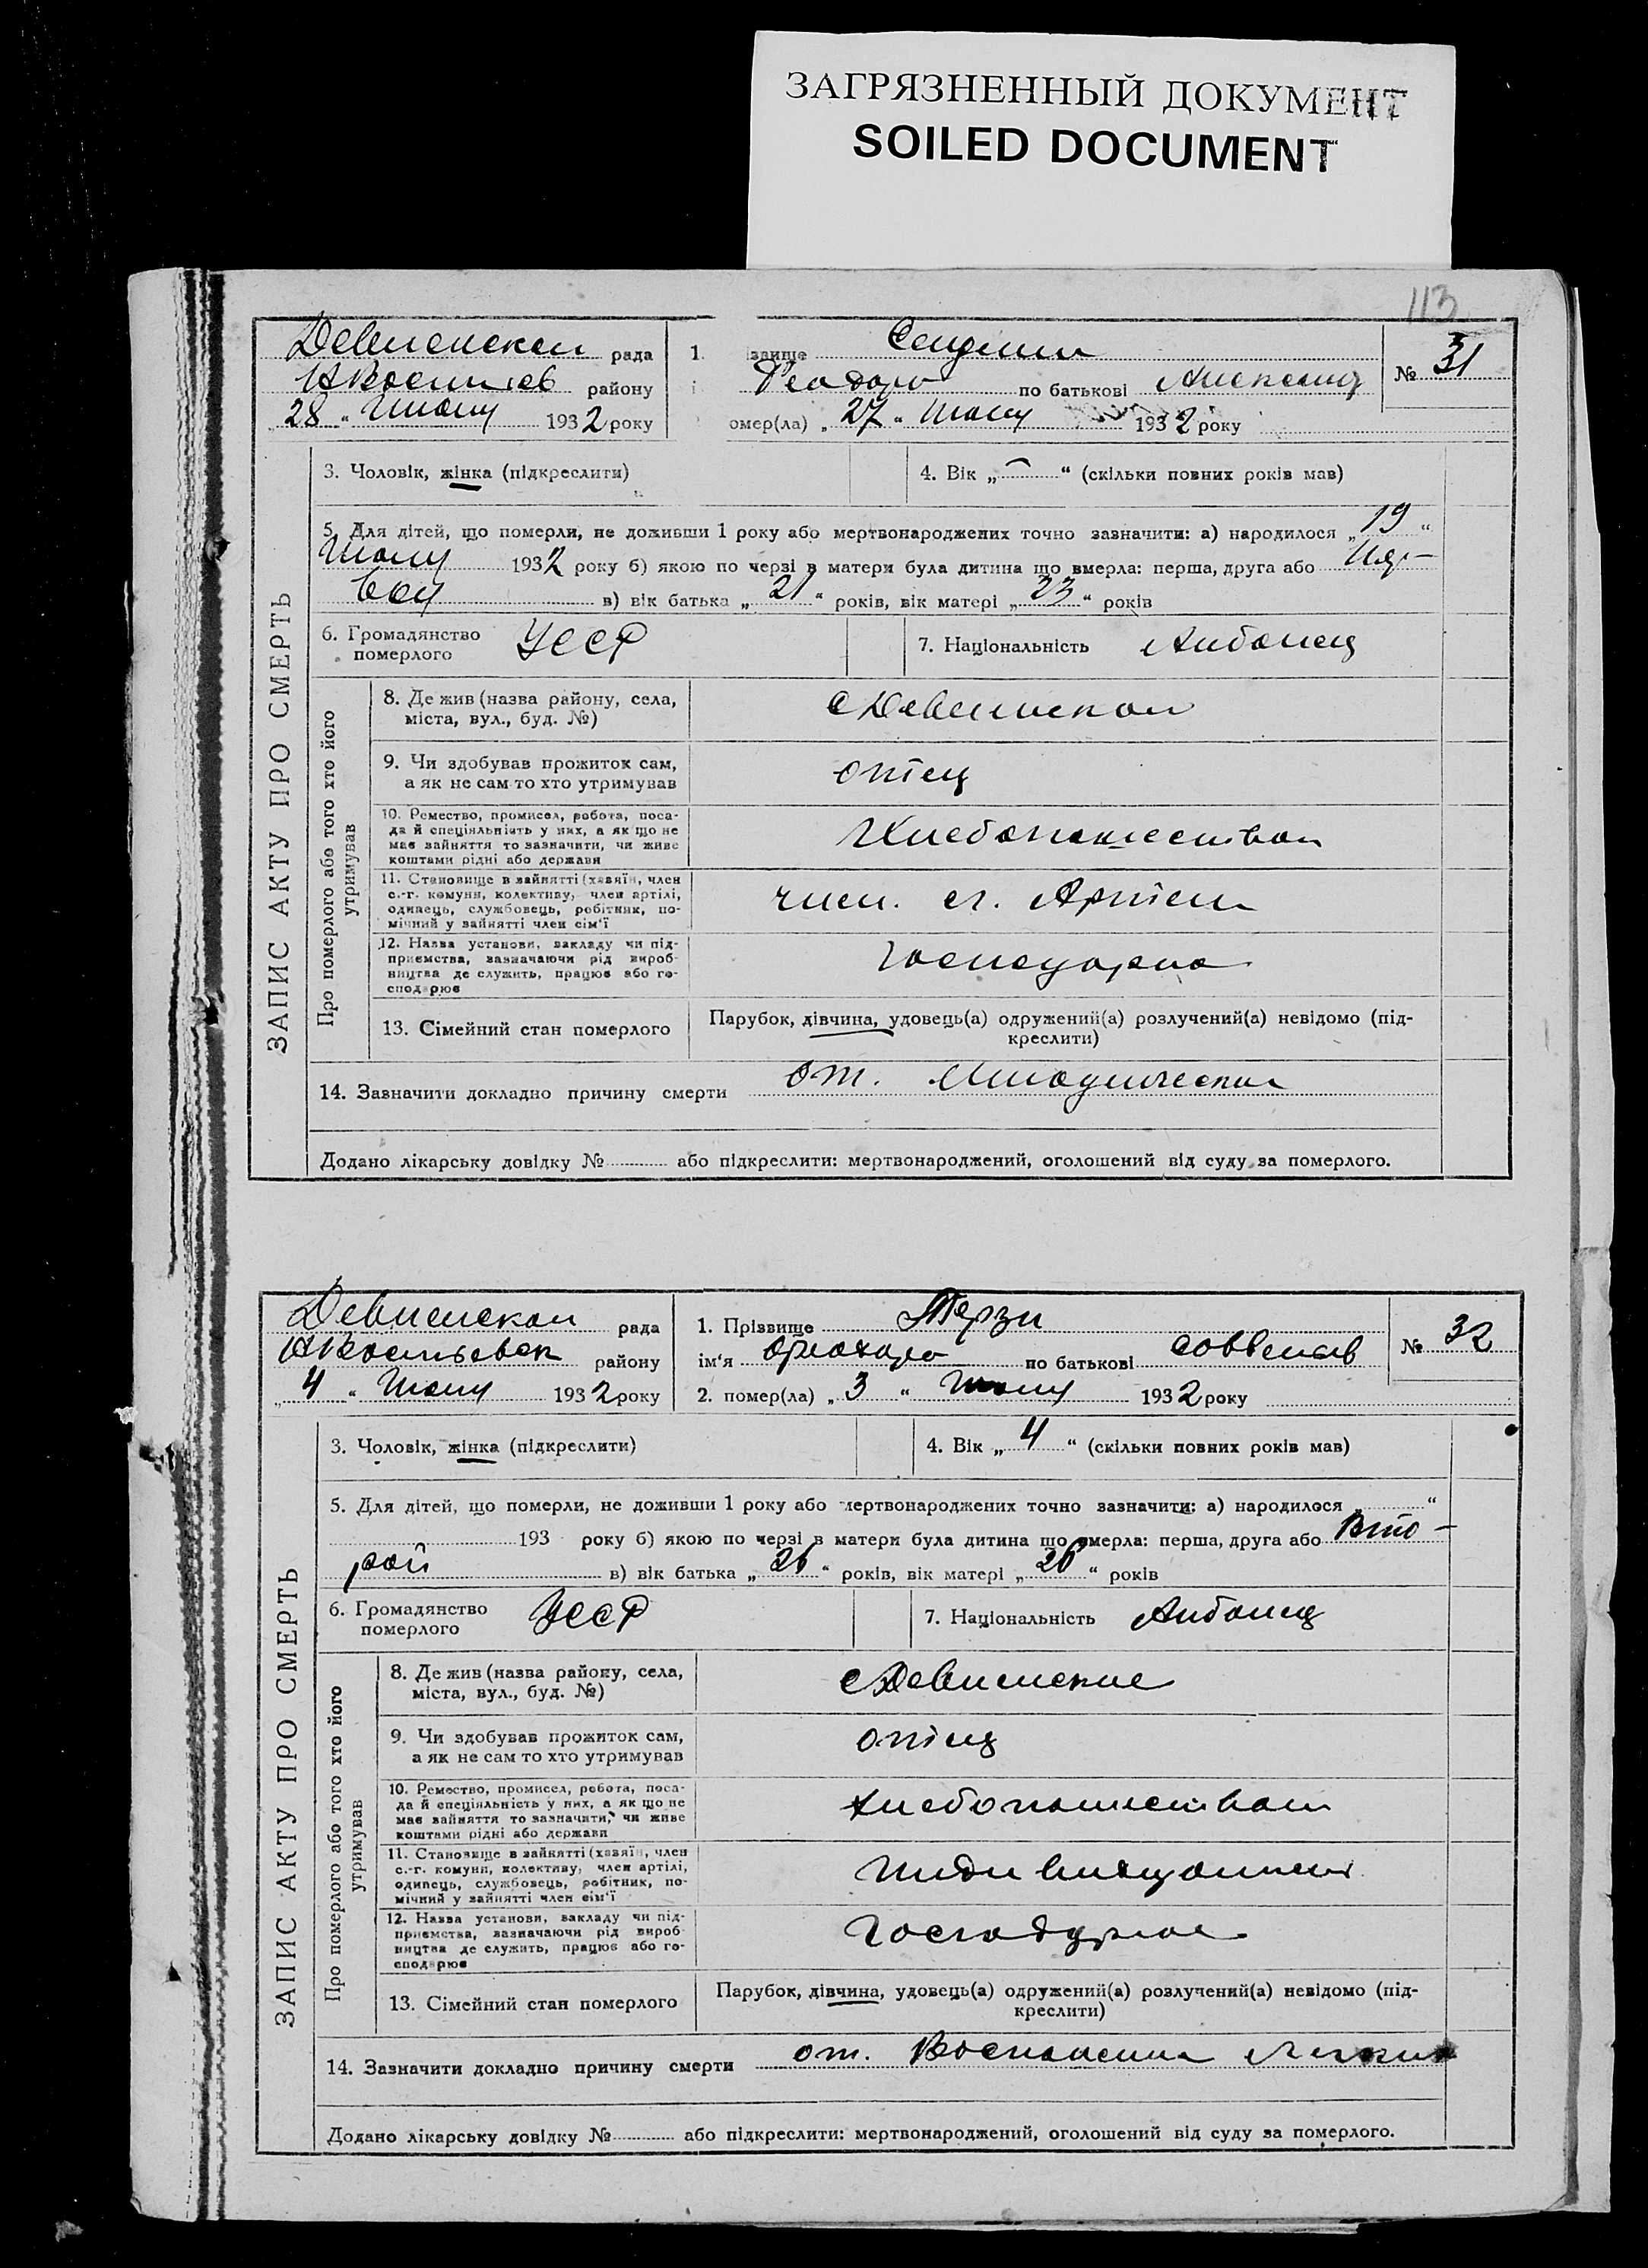 ЗАГРЯЗНЕННЫЙ ДОКУМЕНТ
SOILED DOCUMENT
113
рада
району
28 " 1932 року
1. ізвище
по батькові
омер(ла) „ 27 " 1932 року
№ 31
ЗАПИС АКТУ ПРО СМЕРТЬ
3. Чоловік, жінка (підкреслити)
4. Вік „ — “ (скільки повних років мав)
5. Для дітей, що померли, не доживши 1 року або мертвонароджених точно зазначити: а) народилося „ 19 “
1932 року б) якою по черзі в матери була дитина що вмерла: перша, друга або Пер-
вая в) вік батька „ 21 “ років, вік матері „ 23 “ років
6. Громадянство
померлого
УССР
7. Національність Албанец
Про померлого або того хто його
утримував
8. Де жив (назва району, села,
міста, вул., буд. №)
9. Чи здобував прожиток сам,
а як не сам то хто утримував
отец
10. Ремество, промисел, робота, поса-
да й спеціяльність у них, а як що не
має зайняття то зазначити, чи живе
коштами рідні або держави
Хлебопашеством
11. Становище в зайнятті (хазяїн, член
с.-г. комуни, колективу, член артілі,
одинець, службовець, робітник, по-
мічний у зайнятті член сім'ї
член. ст. Артели
12. Назва установи, закладу чи під-
приємства, зазначаючи рід вироб-
ництва де служить, працює або го-
сподарює
13. Сімейний стан померлого
Парубок, дівчина, удовець(а) одружений(а) розлучений(а) невідомо (під-
креслити)
14. Зазначити докладно причину смерти от.
Додано лікарську довідку № або підкреслити: мертвонароджений, оголошений від суду за померлого.
рада
району
4 " 1932 року
1. Прізвище Терзи
ім'я по батькові
2. помер(ла) „ 3 “ 1932 року
№ 32
ЗАПИС АКТУ ПРО СМЕРТЬ
3. Чоловік, жінка (підкреслити)
4. Вік „ 4 “ (скільки повних років мав)
5. Для дітей, що померли, не доживши 1 року або мертвонароджених точно зазначити: а) народилося „ “
193 року б) якою по черзі в матери була дитина що вмерла: перша, друга або Вто-
рой в) вік батька „ 26 “ років, вік матері „ 26 “ років
6. Громадянство
померлого
УССР
7. Національність Албанец
Про померлого або того хто його
утримував
8. Де жив (назва району, села,
міста, вул., буд. №)
9. Чи здобував прожиток сам,
а як не сам то хто утримував
отец
10. Ремество, промисел, робота, поса-
да й спеціяльність у них, а як що не
має зайняття то зазначити, чи живе
коштами рідні або держави
хлебопашеством
11. Становище в зайнятті (хазяїн, член
с.-г. комуни, колективу, член артілі,
одинець, службовець, робітник, по-
мічний у зайнятті член сім'ї
12. Назва установи, закладу чи під-
приємства, зазначаючи рід вироб-
ництва де служить, працює або го-
сподарює
13. Сімейний стан померлого
Парубок, дівчина, удовець(а) одружений(а) розлучений(а) невідомо (під-
креслити)
14. Зазначити докладно причину смерти от. Воспаления
Додано лікарську довідку № або підкреслити: мертвонароджений, оголошений від суду за померлого.